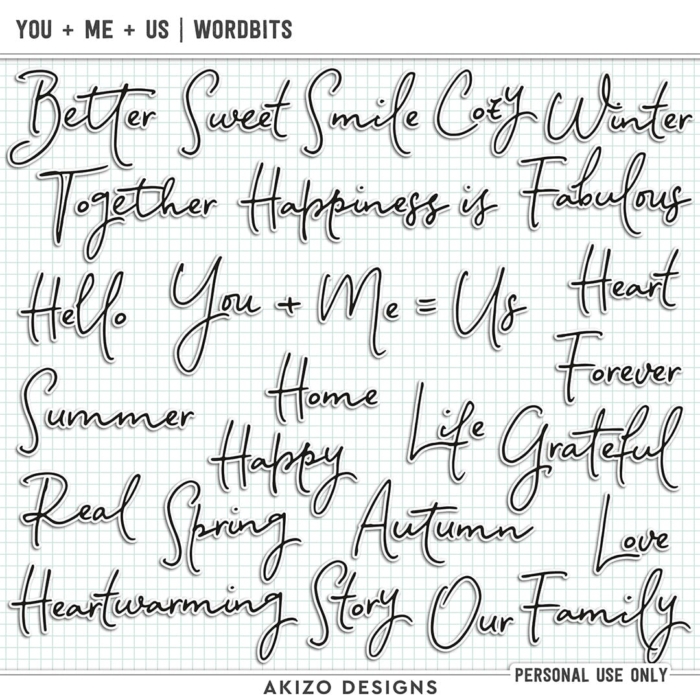 YOU + ME + US | WORDBITS
Better Sweet Smile Cozy Winter
Together Happiness is Fabulous
Hello You + Me = Us Heart
Forever
Summer Home Life Grateful
Happy
Real Spring Autumn Love
Heartwarming Story Our Family
PERSONAL USE ONLY
AKIZO DESIGNS